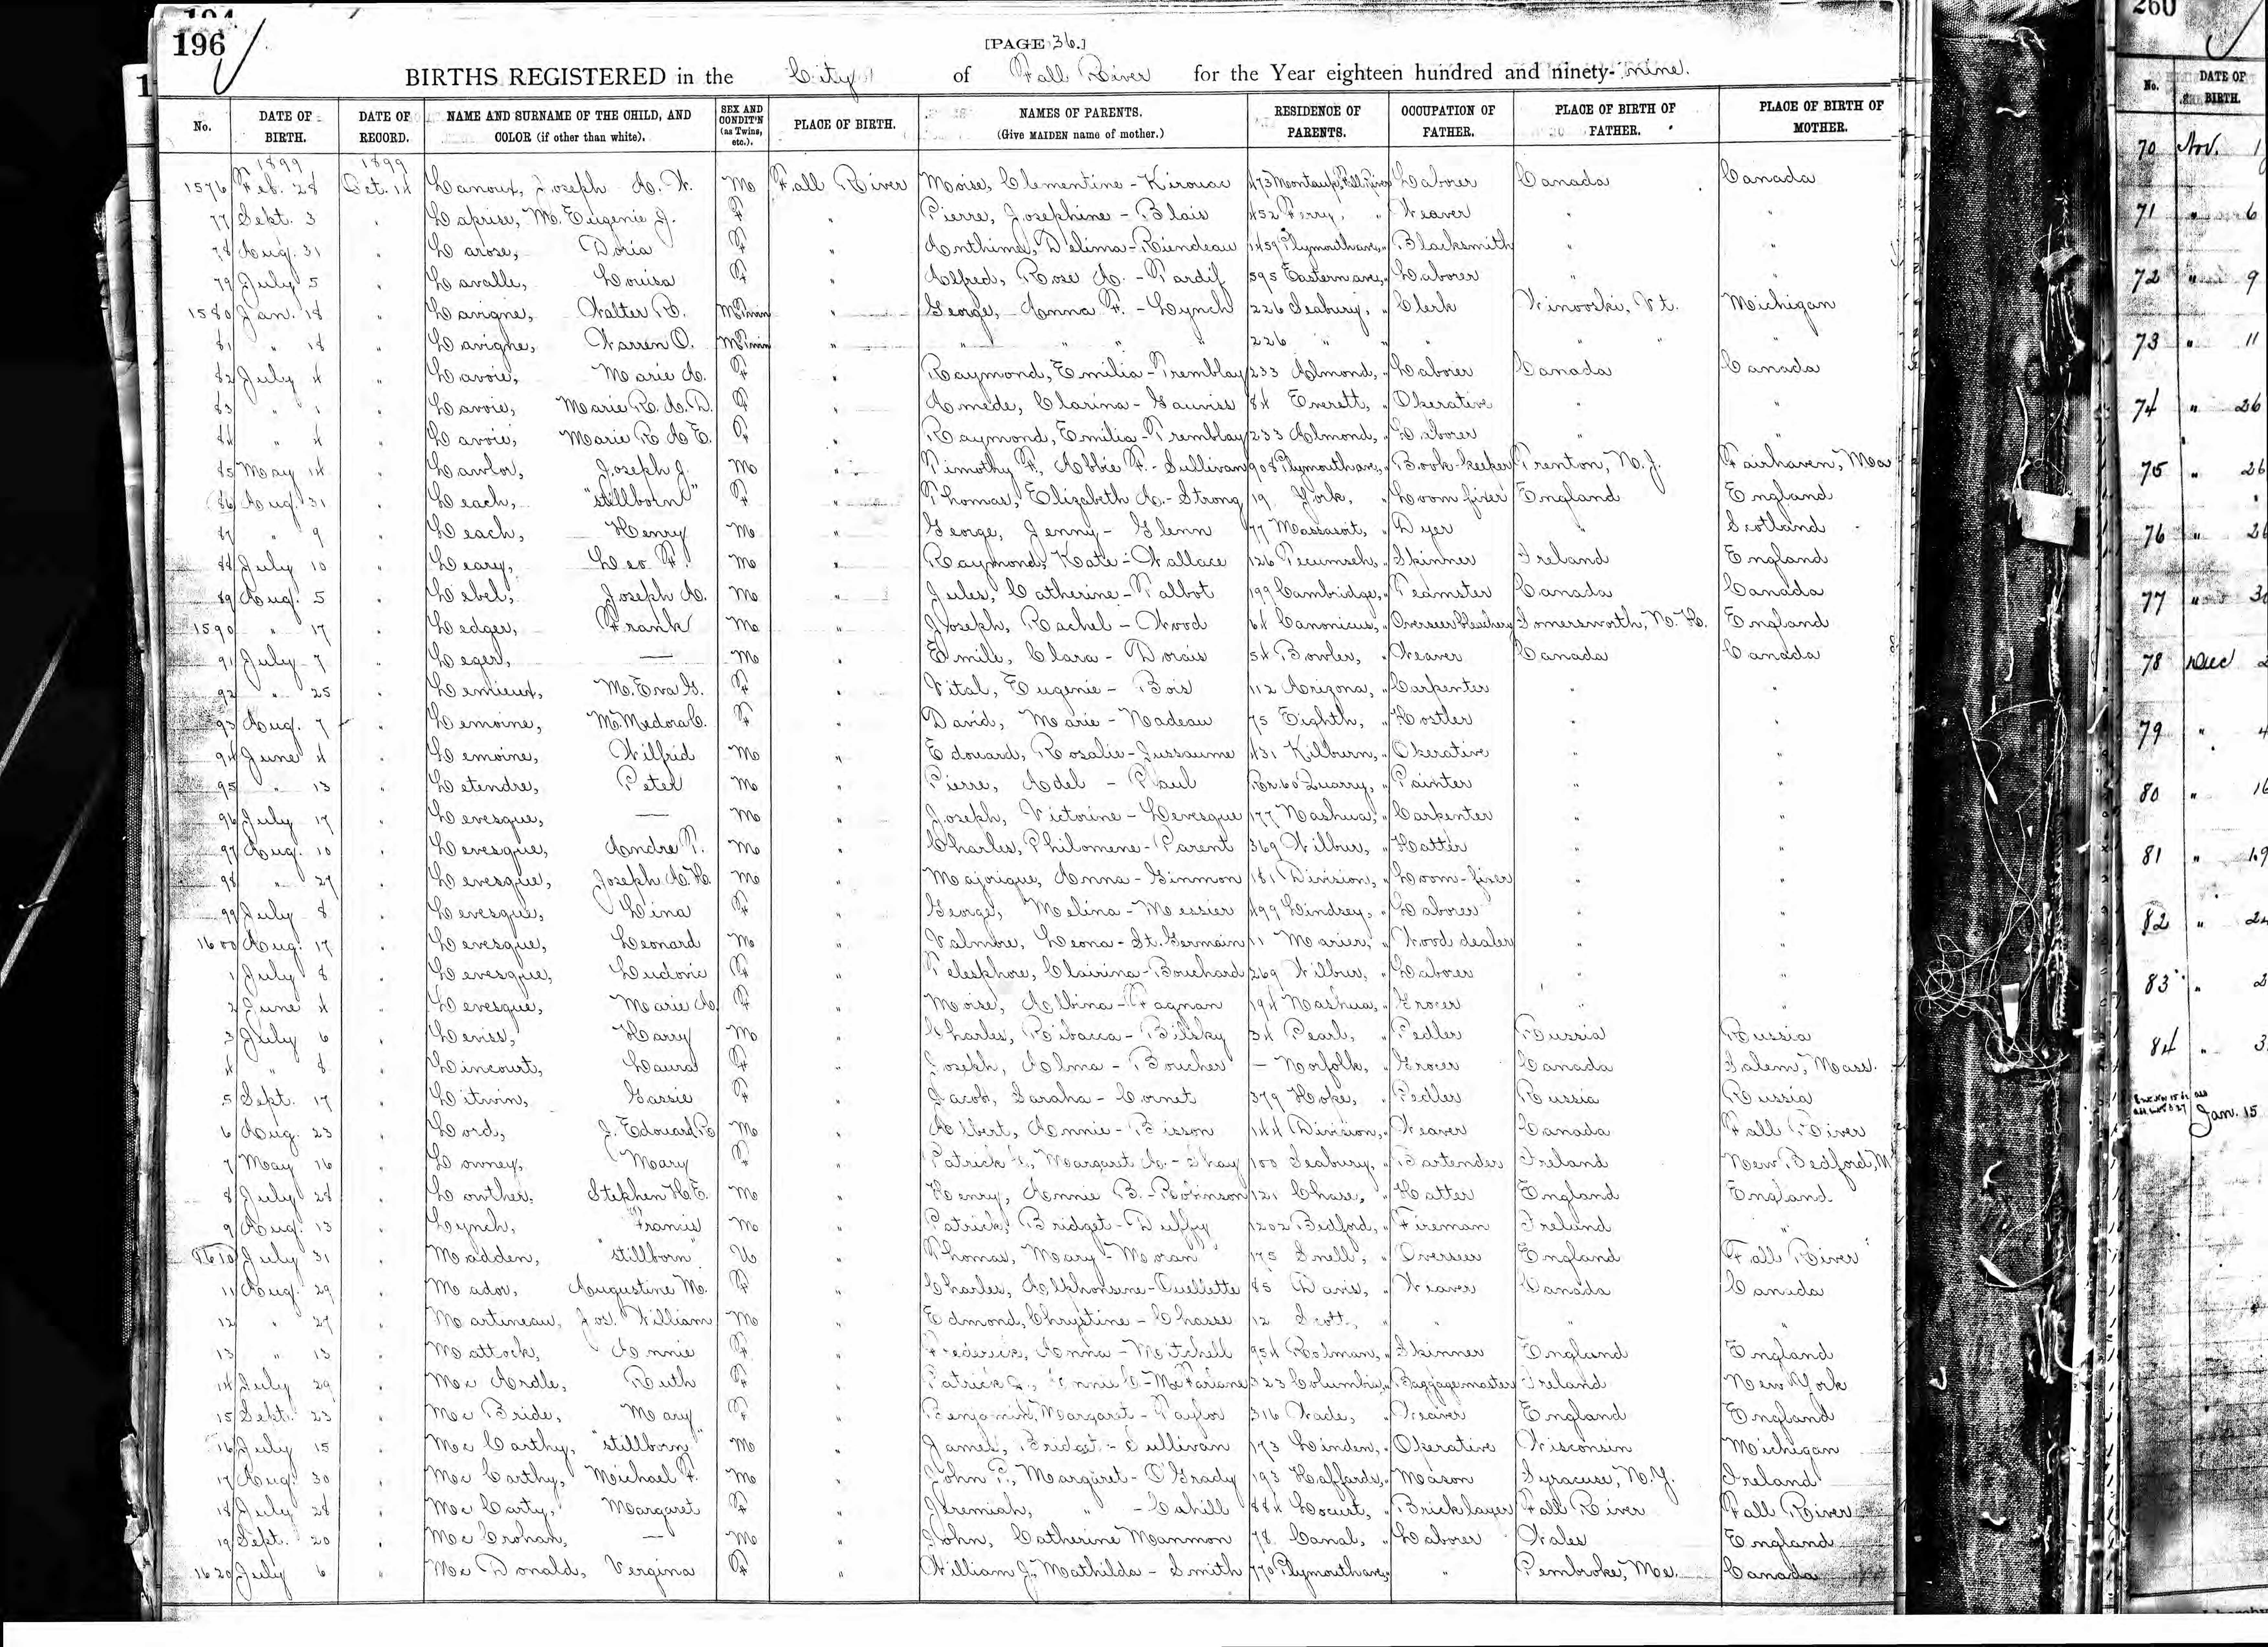 194
196
[PAGE 36.]
BIRTHS REGISTERED in the City of Fall River for the Year eighteen hundred and ninety-nine.
No. DATE OF BIRTH. DATE OF RECORD. NAME AND SURNAME OF THE CHILD, AND COLOR (if other than white). SEX AND CONDIT'N (as Twins, etc.). PLACE OF BIRTH. NAMES OF PARENTS. (Give MAIDEN name of mother.) RESIDENCE OF PARENTS. OCCUPATION OF FATHER. PLACE OF BIRTH OF FATHER. PLACE OF BIRTH OF MOTHER.
1899 1899
1576 Feb. 28 Oct. 14 Lanoux, Joseph A. W. M Fall River Moise, Clementine - Kirouac 473 Montaup, Fall River Laborer Canada Canada
77 Sept. 3 " Laprise, M. Eugenie J. F " Pierre, Josephine - Blais 452 Ferry, " Weaver " "
78 Aug. 31 " Larose, Doria F " Anthime, Delima - Riendeau 1459 Plymouth ave, " Blacksmith " "
79 July 5 " Lavalle, Louisa F " Alfred, Rose A. - Tardif 595 Eastern ave, " Laborer " "
1580 Jan. 18 " Lavigne, Walter R. M Twin " George, Anna F. - Lynch 226 Seabury, " Clerk Winooski, Vt. Michigan
81 " 18 " Lavigne, Warren O. M Twin " " " " " 226 " " " " " "
82 July 4 " Lavoie, Marie A. F " Raymond, Emilia - Tremblay 233 Almond, " Laborer Canada Canada
83 " 1 " Lavoie, Marie R. A. D. F " Amede, Clarina - Gauviss 84 Everett, " Operative " "
84 " 4 " Lavoie, Marie R. A. E. F " Raymond, Emilia - Tremblay 233 Almond, " Laborer " "
85 May 14 " Lawlor, Joseph J. M " Timothy F., Abbie F. - Sullivan 908 Plymouth ave, " Book-keeper Trenton, N. J. Fairhaven, Ma
86 Aug. 31 " Leach, "stillborn" F " Thomas, Elizabeth A. - Strong 19 York, " Loom fixer England England
87 " 9 " Leach, Henry M " George, Jenny - Glenn 77 Massasoit, " Dyer " Scotland
88 July 10 " Leary, Leo F. M " Raymond, Kate - Wallace 126 Tecumseh, " Skinner Ireland England
89 Aug. 5 " Lebel, Joseph A. M " Jules, Catherine - Talbot 199 Cambridge, " Teamster Canada Canada
1590 " 17 " Ledger, Frank M " Joseph, Rachel - Wood 64 Canonicus, " Overseer bleachery Somersworth, N. H. England
91 July 7 " Leger, — M " Emile, Clara - Dorais 54 Bowler, " Weaver Canada Canada
92 " 25 " Lemieux, M. Eva G. F " Vital, Eugenie - Bois 112 Arizona, " Carpenter " "
93 Aug. 7 " Lemoine, M. Medora C. F " David, Marie - Nadeau 75 Eighth, " Hostler " "
94 June 4 " Lemoine, Wilfrid M " Edouard, Rosalie - Jussaume 431 Kilburn, " Operative " "
95 " 13 " Letendre, Peter M " Pierre, Adel - Paul Rr. 60 Quarry, " Painter " "
96 July 17 " Levesque, — M " Joseph, Victorine - Levesque 177 Nashua, " Carpenter " "
97 Aug. 10 " Levesque, Andre T. M " Charles, Philomene - Parent 369 Wilbur, " Hatter " "
98 " 27 " Levesque, Joseph A. H. M " Majorique, Anna - Ginmon 181 Division, " Loom-fixer " "
99 July 8 " Levesque, Lina F " George, Melina - Messier 499 Lindsey, " Laborer " "
1600 Aug. 17 " Levesque, Leonard M " Valmore, Leona - St. Germain 11 Marier, " Wood dealer " "
1 July 8 " Levesque, Ludovic F " Telesphore, Clairina - Bouchard 269 Wilbur, " Laborer " "
2 June 4 " Levesque, Marie A. F " Moise, Albina - Fagnan 194 Nashua, " Grocer " "
3 July 6 " Leviss, Harry M " Charles, Ribacca - Bilsky 34 Pearl, " Pedler Russia Russia
4 " 8 " Lincourt, Laura F " Joseph, Alma - Boucher — Norfolk, " Grocer Canada Salem, Mass.
5 Sept. 17 " Litwin, Gassie F " Jacob, Saraha - Cornet 379 Hope, " Pedler Russia Russia
6 Aug. 23 " Lord, J. Edouard R M " Albert, Annie - Bisson 144 Division, " Weaver Canada Fall River
7 May 16 " Lowney, Mary F " Patrick, Margaret A. - Shay 100 Seabury, " Bartender Ireland New Bedford, M
8 July 28 " Lowther, Stephen H. E. M " Henry, Annie B. - Robinson 121 Chase, " Hatter England England
9 Aug. 13 " Lynch, Francis M " Patrick, Bridget - Duffy 1202 Bedford, " Fireman Ireland "
1610 July 31 " Madden, "stillborn" U " Thomas, Mary - Moran 175 Snell, " Overseer England Fall River
11 Aug. 29 " Mador, Augustine M. F " Charles, Alphonsine - Ouellette 85 Davis, " Weaver Canada Canada
12 " 27 " Martineau, Jos. William M " Edmond, Chrystine - Chasse 12 Scott, " " " "
13 " 13 " Mattock, Annie F " Frederick, Anna - Mitchell 954 Rodman, " Skinner England England
14 July 29 " Mc Ardle, Ruth F " Patrick J., Annie C - McFarlane 323 Columbia, " Baggagemaster Ireland New York
15 Sept. 23 " Mc Bride, Mary F " Benjamin, Margaret - Taylor 316 Wade, " Weaver England England
16 July 15 " Mc Carthy, "stillborn" M " James, Bridget - Sullivan 173 Linden, " Operative Wisconsin Michigan
17 Aug. 30 " Mc Carthy, Michael F. M " John P., Margaret - O'Grady 193 Haffards, " Mason Syracuse, N. Y. Ireland
18 July 28 " Mc Carty, Margaret F " Jeremiah, " - Cahill 884 Locust, " Bricklayer Fall River Fall River
19 Sept. 20 " Mc Crohan, — M " John, Catherine Mammon 78 Canal, " Laborer Wales England
1620 July 6 " Mc Donald, Vergina F " William J., Mathilda - Smith 770 Plymouth ave, " " Pembroke, Me. Canada
260
No. DATE OF BIRTH.
70 Nov. 1
71 " 6
72 " 9
73 " 11
74 " 26
75 " 26
76 " 26
77 " 30
78 Dec 2
79 " 4
80 " 16
81 " 19
82 " 24
83 " 2
84 " 3
Jan. 15